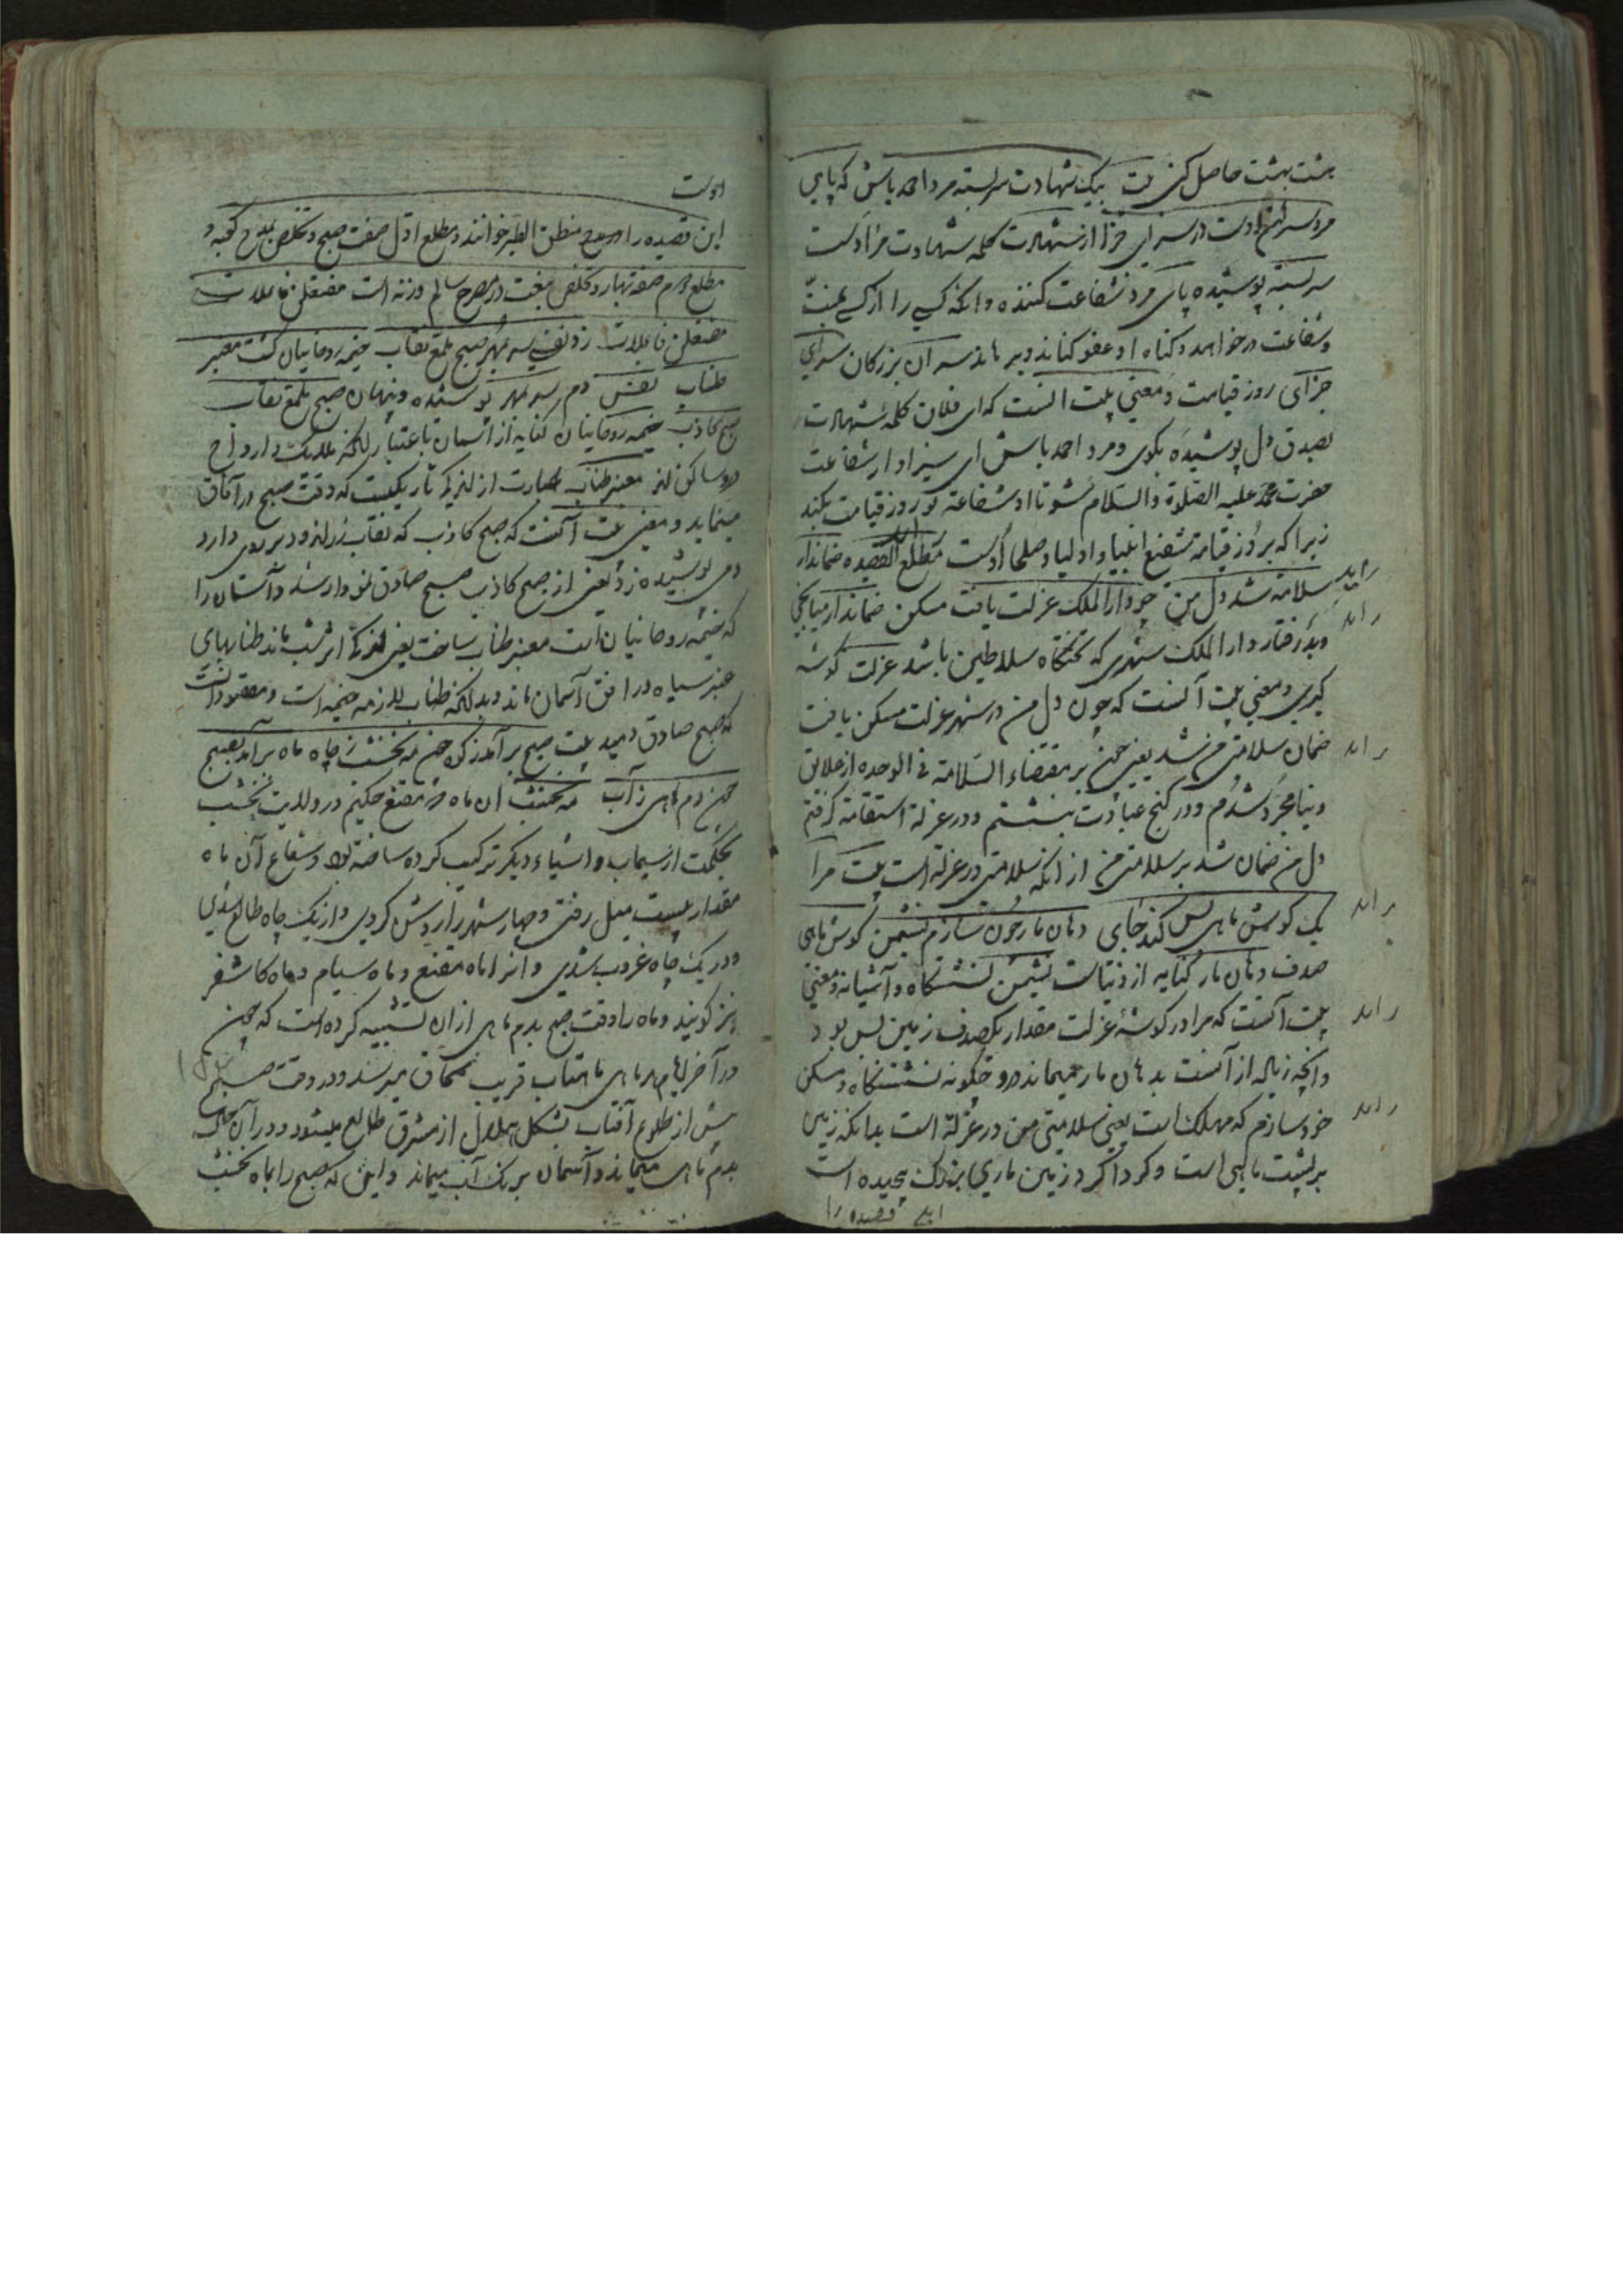 هشت بهشت حاصل کنی بیت بیک شهادت سربسته مرد احمد باش که پای
مرد سران اوست در سرای جزا از شهادت کلمه شهادت مراد است
سربسته پوشیده پای مرد شفاعت کننده و آنکه کسی را از کسی بمنت
و شفاعت درخواهد و گناه او عفو کناند و برهاند سران بزرگان سرای
جزای روز قیامت و معنی بیت آنست که ای فلان کلمه شهادت
بصدق دل پوشیده بگوی و مرد احمد باش ای سزاوار شفاعت
حضرت محمد علیه الصلوة والسلام شو تا او شفاعة تو روز قیامت بکند
زیرا که بروز قیامة شفیع انبیا و اولیا و صلحا اوست مطلع القصیده ضماندار
سلامة شد دل من چو دارالملک عزلت یافت مسکن ضماندار میانجی
و بدرفتار دارالملک شهری که تختگاه سلاطین باشد عزلت گوشه
گیری و معنی بیت آنست که چون دل من در شهر عزلت مسکن یافت
ضمان سلامتی من شد یعنی چون بر مقتضاء السلامة فی الوحده از علایق
دنیا مجرد شدم و در کنج عبادت بنشستم و در عزلة استقامة گرفتم
دل من ضمان شد بر سلامتی من از آنکه سلامتی در عزلة است بیت مرا
یک گوش ماهی بس کند جای دهان مار چون سازم نشیمن گوش ماهی
صدف دهان مار کنایه از دنیاست نشیمن نشستگاه و آشیانه و معنی
بیت آنست که مرا در گوشهٔ عزلت مقدار یک صدف زمین بس بود
و آنچه زیاله از آنست بدهان مار میماند درو چگونه نشستگاه و مسکن
خود سازم که مهلک است یعنی سلامتی من در عزلة است بدانکه زمین
بر پشت ماهی است و گرداگرد زمین ماری بزرگ پیچیده است
این قصیده را
اوست
این قصیده را منطق الطیر خوانند و مطلع اول صفت صبح و تخلص بمدح کعبه و
مطلع دوم صفة بهار و تخلص بنعت در منسرح سالم وزنه است مفتعلن فاعلات
مفتعلن فاعلات زد نفس سر بمهر صبح ملمع نقاب خیمه روحانیان گشت معنبر
طناب نفس دم سر بمهر پوشیده و پنهان صبح ملمع نقاب
صبح کاذب خیمه روحانیان کنایه از آسمان باعتبار آنکه ملائک و ارواح
درو ساکن اند معنبر طناب عبارت از اندک تاریکیست که وقت صبح در آفاق
مینماید و معنی بیت آنست که صبح کاذب که نقاب زراندود بر روی دارد
دمی پوشیده زد یعنی از صبح کاذب صبح صادق نمودار شد و آسمان را
که خیمه روحانیان است معنبر طناب ساخت یعنی اندکی اثر شب ماند طنابهای
عنبر سیاه در افق آسمان ماند و بدانکه طناب لازمه خیمه است و مقصود آنست
که صبح صادق دمید بیت صبح برآمد ز کوه چون مه نخشب ز چاه ماه برآمد بصبح
چون دم ماهی ز آب مه نخشب آن ماه که مقنع حکیم در ولایت نخشب
بحکمت از سیماب و اشیاء دیگر ترکیب کرده ساخته بود و شعاع آن ماه
مقدار بیست میل رفتی و چهار شهر را روشن کردی و از یک چاه طالع شدی
و در یک چاه غروب شدی و آنرا ماه مقنع و ماه سیام و ماه کاشغر
نیز گویند و ماه را وقت صبح بدم ماهی از آن تشبیه کرده است که چون
در آخر ماه ماهتاب قریب محاق میرسد و در وقت صبح
پیش از طلوع آفتاب بشکل هلال از مشرق طالع میشود و در آن حال
بدم ماهی میماند و آسمان برنگ آب میماند و این که صبح را بماه نخشب